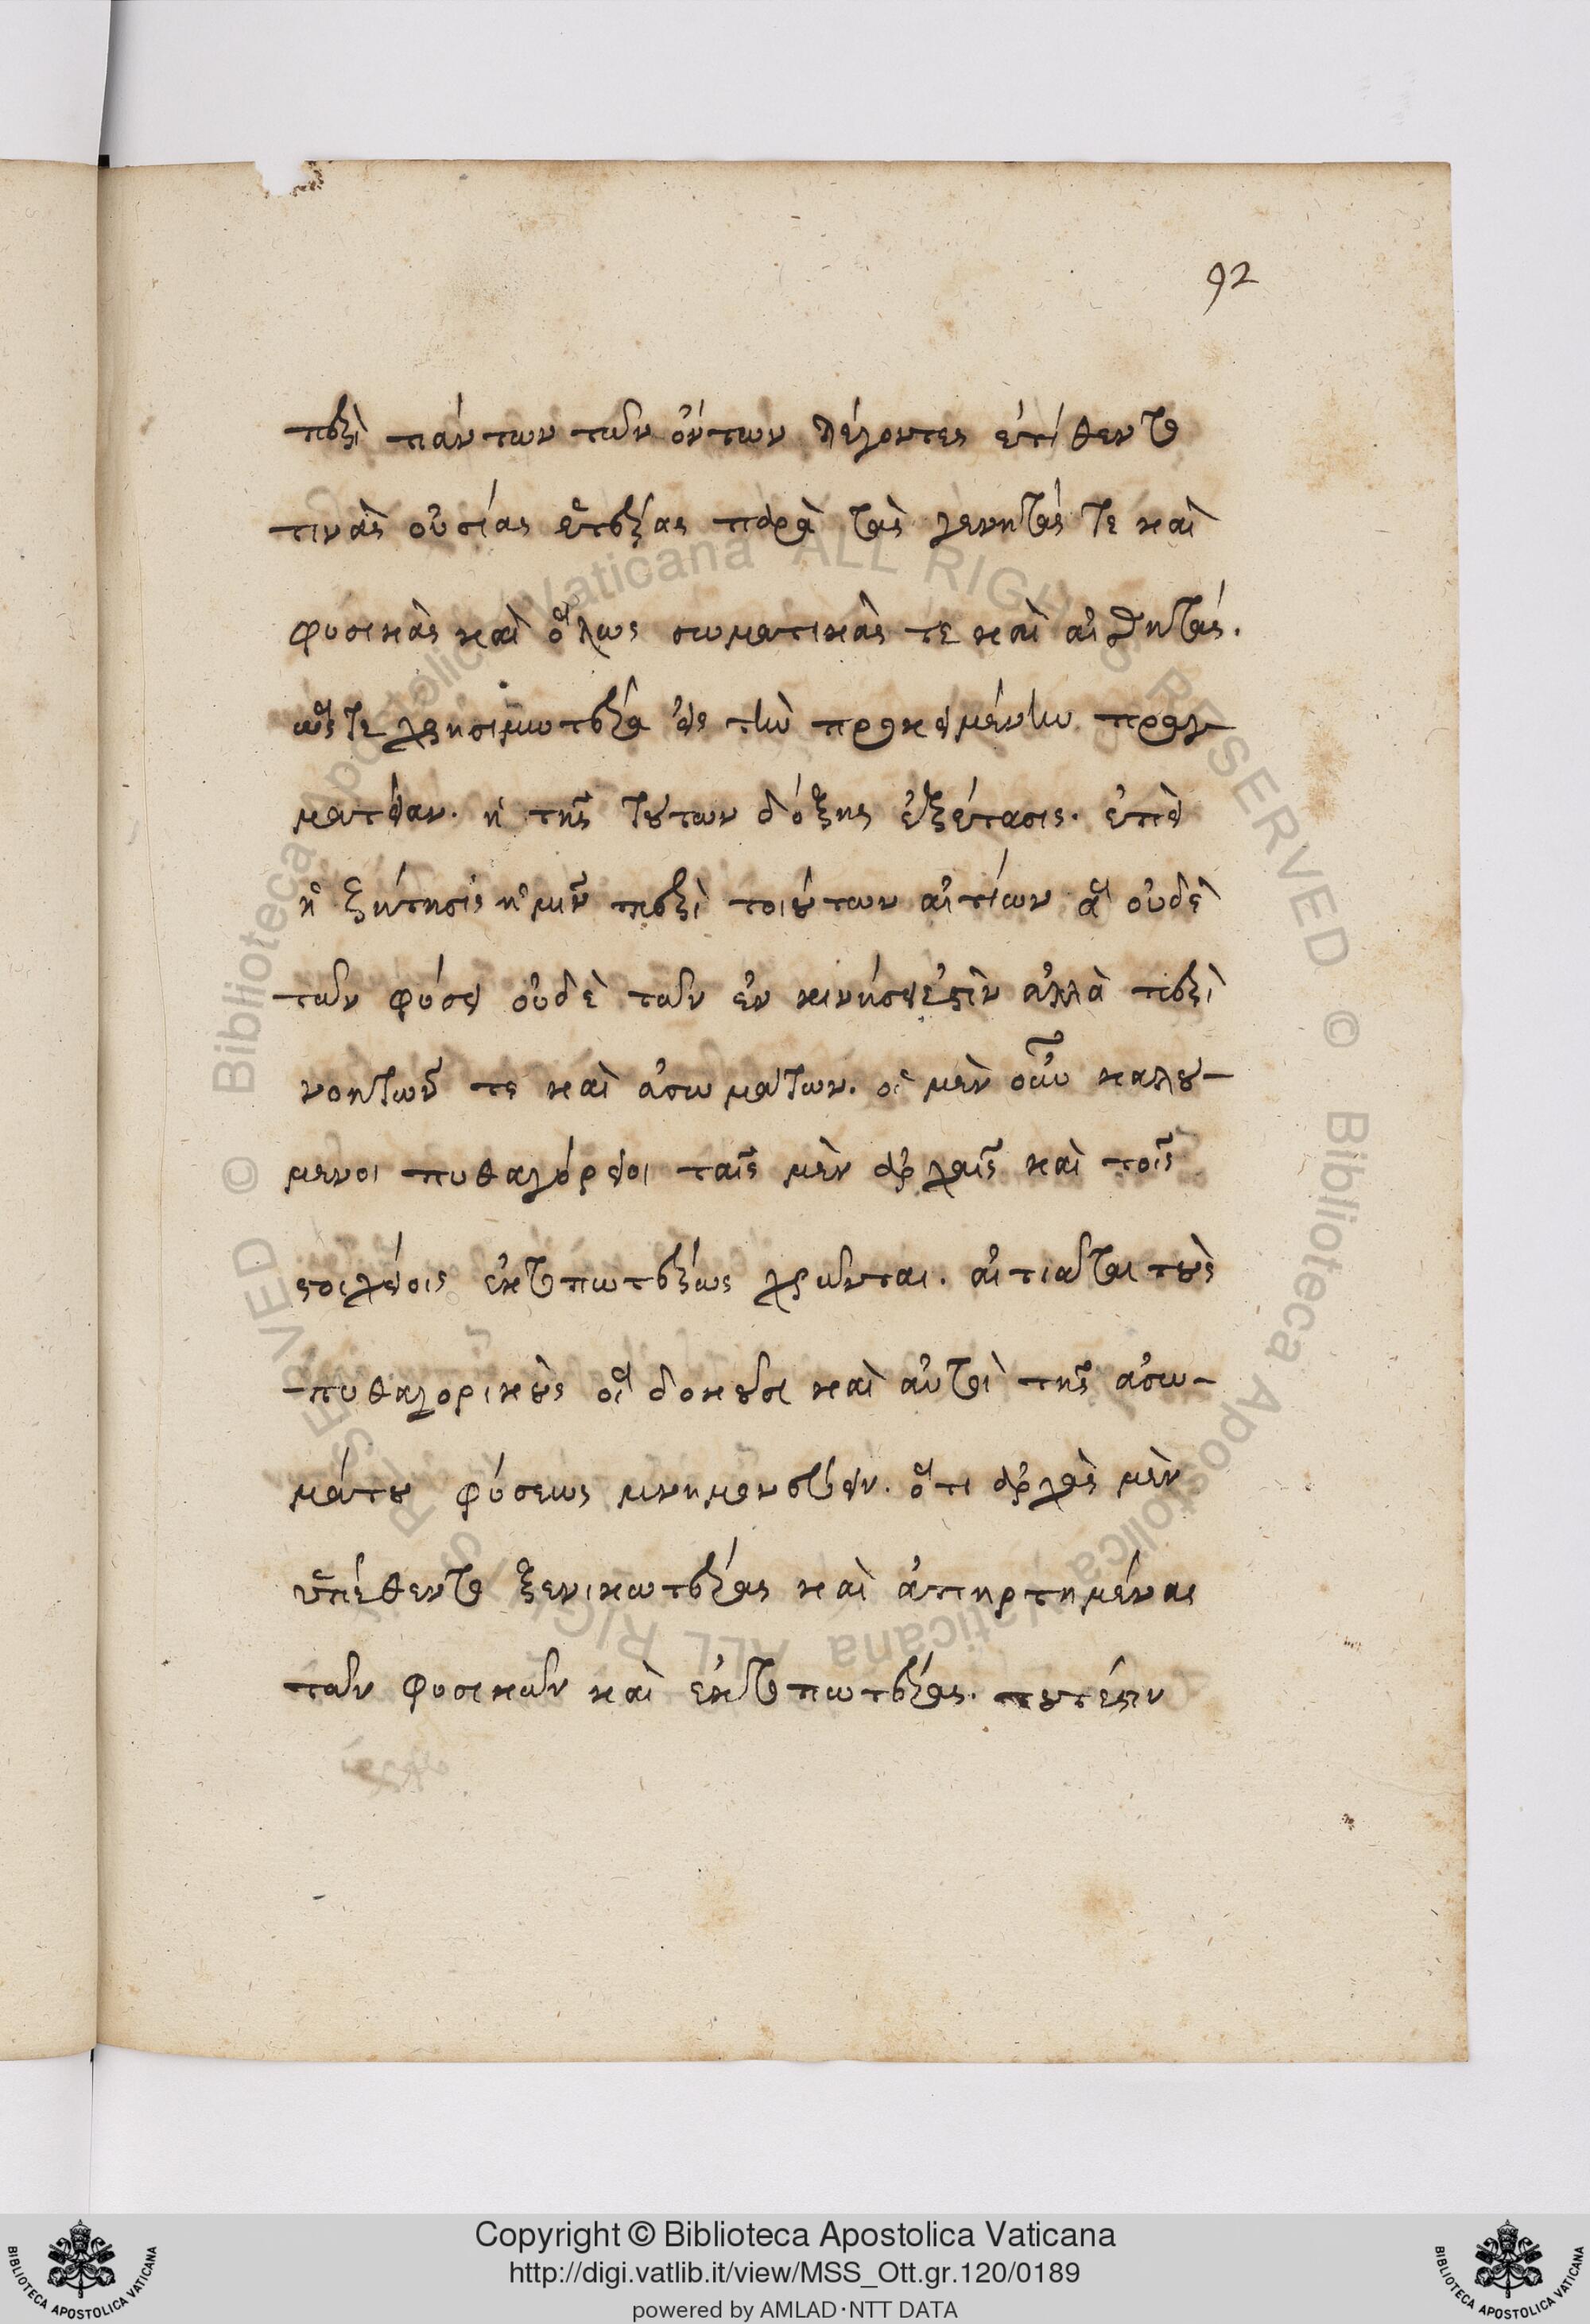 92
περὶ πάντων τῶν ὄντων λέγοντες ἐτίθεντο
τινὰς οὐσίας ἑτέρας παρὰ τὰς γενητάς τε καὶ
φυσικὰς καὶ ὅλως σωματικὰς τε καὶ αἰσθητάς.
ὥστε χρησιμωτέρα εἰς τὴν προκειμένην πραγ
ματείαν. ἡ τῆς τούτων δόξης ἐξέτασις. ἐπεὶ
ἡ ζήτησις ἡμῖν περὶ τοιούτων αἰτίων ἃ οὐδὲ
τῶν φύσει οὐδὲ τῶν ἐν κινήσει ἐστὶν ἀλλὰ περὶ
νοητῶν τε καὶ ἀσωμάτων. οἱ μὲν οὖν καλού-
μενοι πυθαγόρειοι ταῖς μὲν ἀρχαῖς καὶ τοῖς
στοιχείοις ἐκτοπωτέρως χρῶνται. αἰτιᾶται τοὺς
πυθαγορικοὺς οἳ δοκοῦσι καὶ αὐτοὶ τῆς ἀσω-
μάτου φύσεως μνημονεύειν. ὅτι ἀρχὰς μὲν
ὑπέθεντο ξενικωτέρας καὶ ἀπηρτημένας
τῶν φυσικῶν καὶ ἐκτοπωτέρας. τουτέστιν
Copyright © Biblioteca Apostolica Vaticana
http://digi.vatlib.it/view/MSS_Ott.gr.120/0189
powered by AMLAD·NTT DATA
BIBLIOTECA APOSTOLICA VATICANA
BIBLIOTECA APOSTOLICA VATICANA
© Biblioteca Apostolica Vaticana ALL RIGHTS RESERVED © Biblioteca Apostolica Vaticana ALL RIGHTS RESERVED